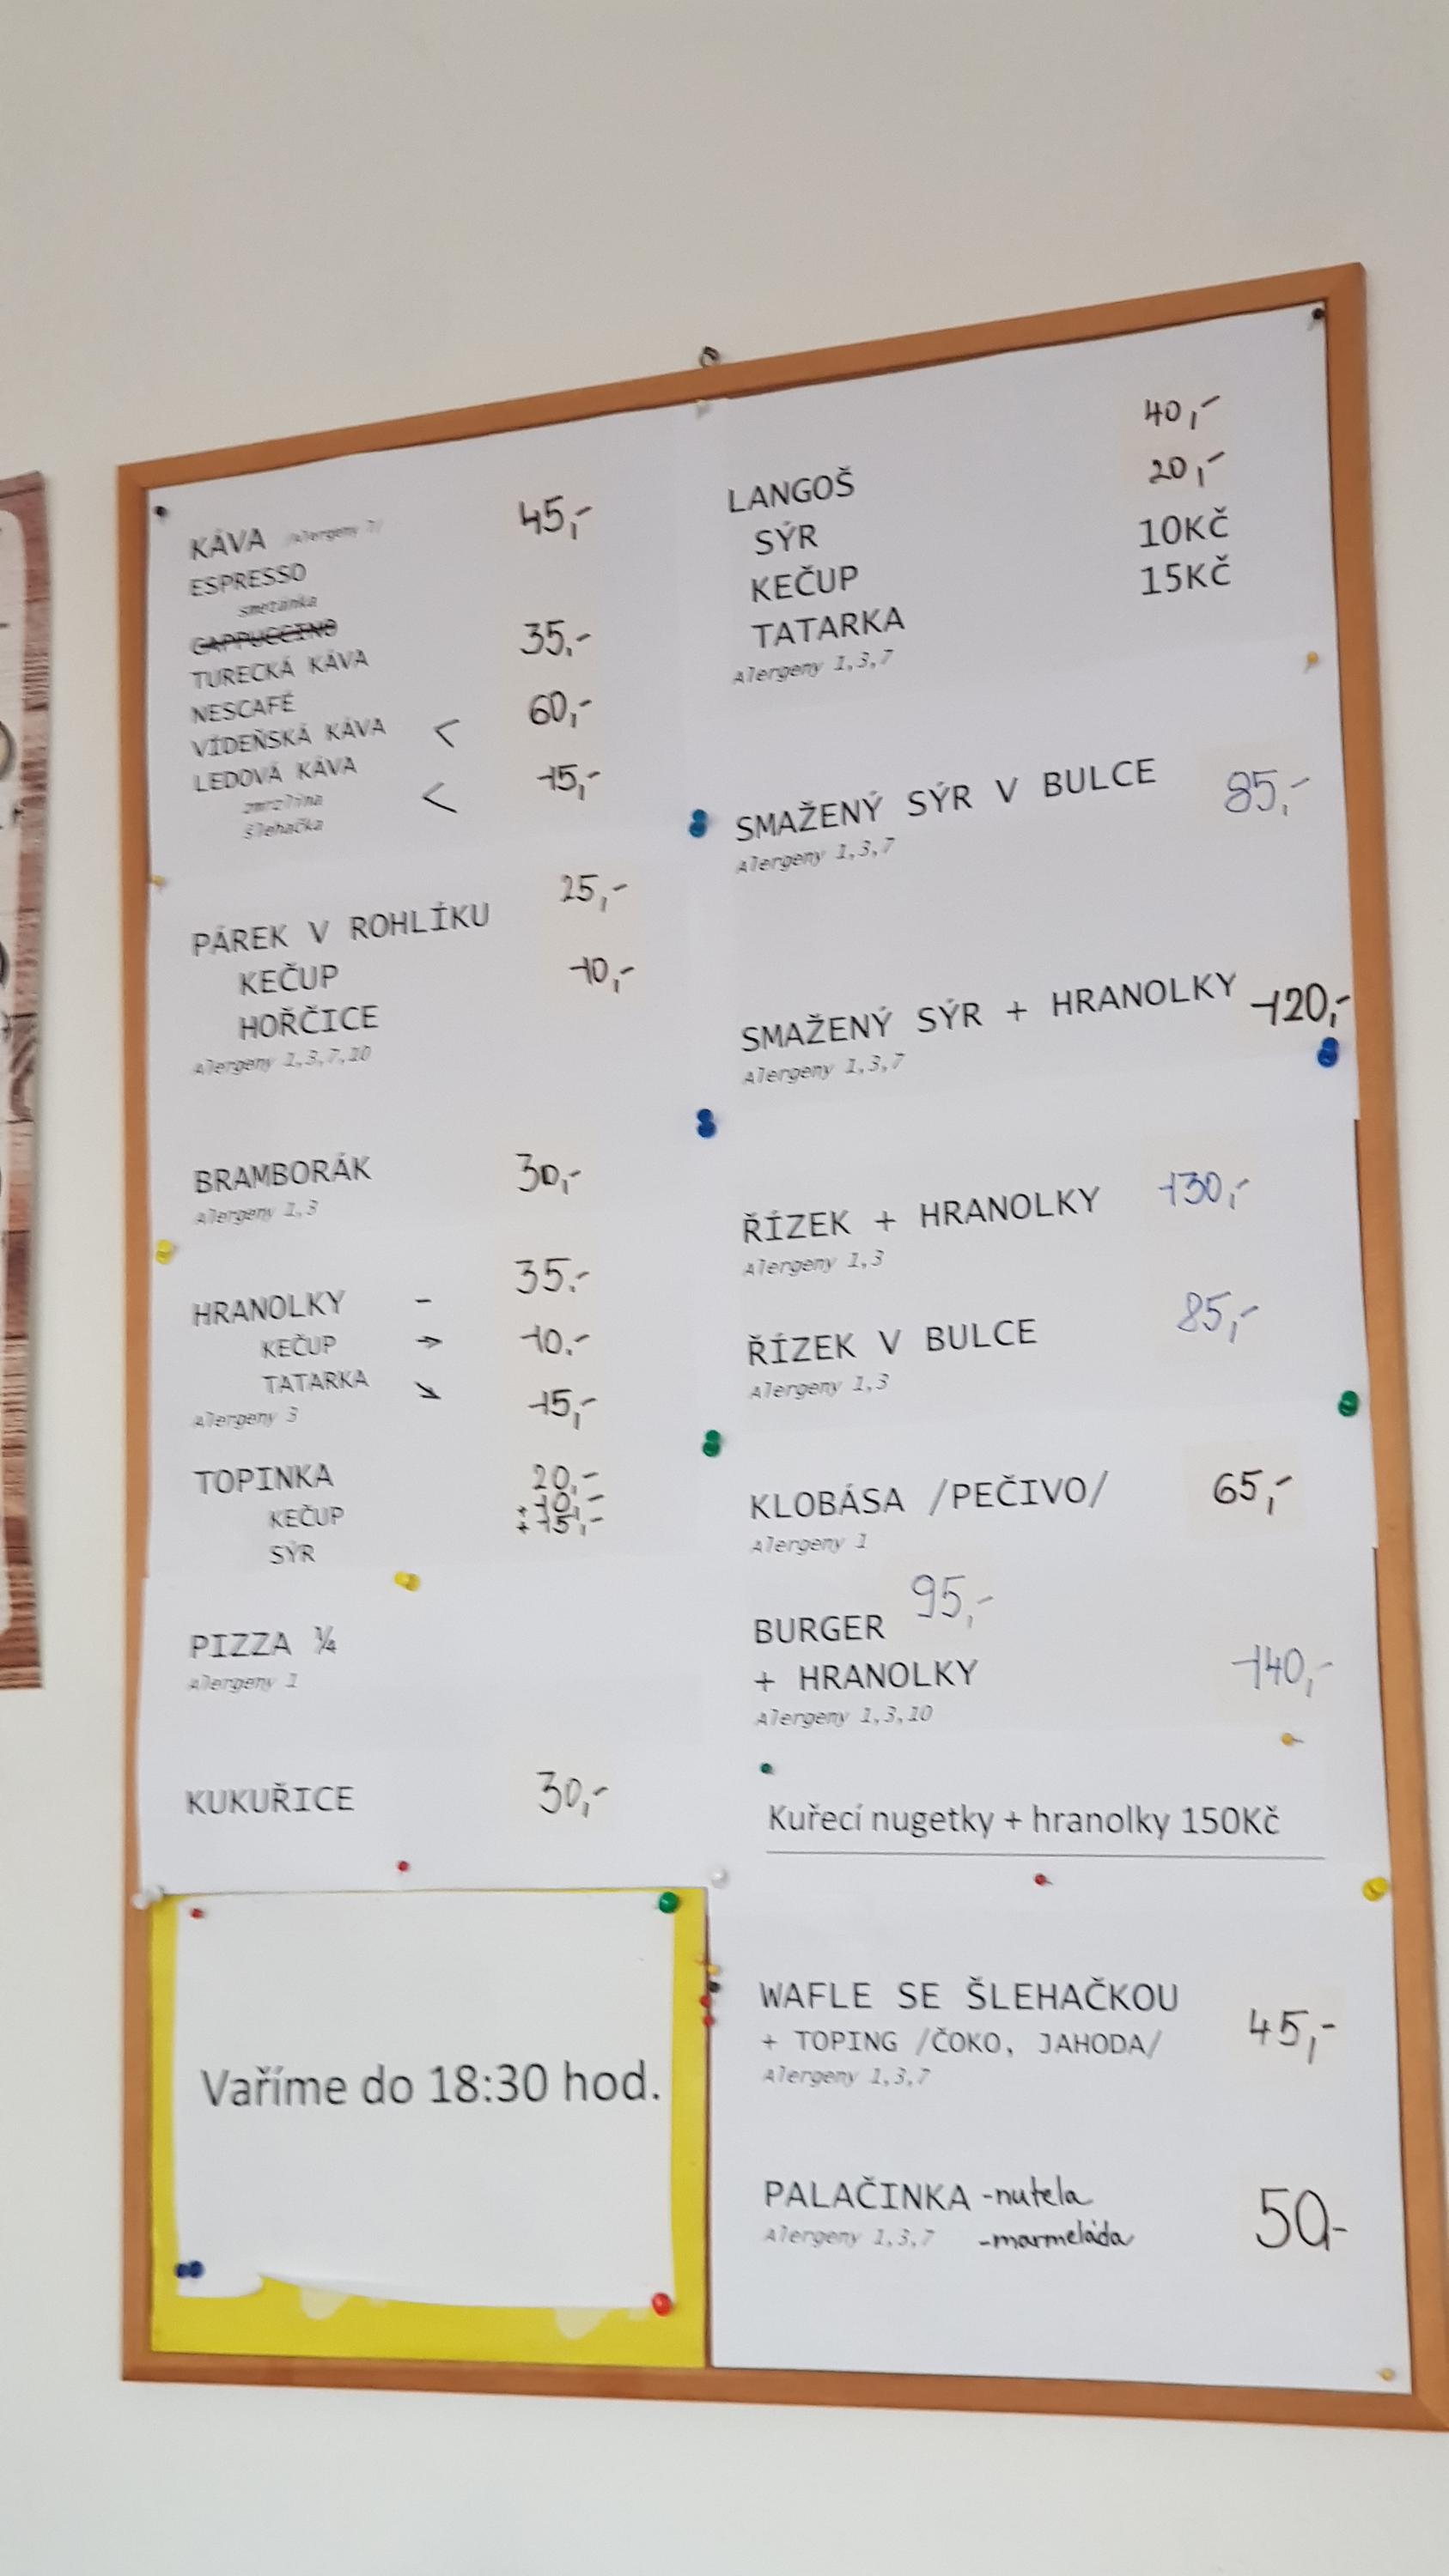 KÁVA /Alergeny 7/ 45,-
ESPRESSO
smetánka
CAPPUCCINO
TURECKÁ KÁVA 35,-
NESCAFÉ
VÍDEŇSKÁ KÁVA < 60,-
LEDOVÁ KÁVA
zmrzlina < 15,-
šlehačka
PÁREK V ROHLÍKU 25,-
KEČUP 10,-
HOŘČICE
Alergeny 1,3,7,10
BRAMBORÁK 30,-
Alergeny 1,3
HRANOLKY - 35.-
KEČUP → 10.-
TATARKA ↘ 15,-
Alergeny 3
TOPINKA 20,-
KEČUP + 10,-
SÝR + 15,-
PIZZA ¼
Alergeny 1
KUKUŘICE 30,-
Vaříme do 18:30 hod.
LANGOŠ 40,-
SÝR 20,-
KEČUP 10KČ
TATARKA 15KČ
Alergeny 1,3,7
SMAŽENÝ SÝR V BULCE 85,-
Alergeny 1,3,7
SMAŽENÝ SÝR + HRANOLKY 120,-
Alergeny 1,3,7
ŘÍZEK + HRANOLKY 130,-
Alergeny 1,3
ŘÍZEK V BULCE 85,-
Alergeny 1,3
KLOBÁSA /PEČIVO/ 65,-
Alergeny 1
BURGER 95,-
+ HRANOLKY 140,-
Alergeny 1,3,10
Kuřecí nugetky + hranolky 150Kč
WAFLE SE ŠLEHAČKOU 45,-
+ TOPING /ČOKO, JAHODA/
Alergeny 1,3,7
PALAČINKA -nutela 50,-
Alergeny 1,3,7 -marmeláda